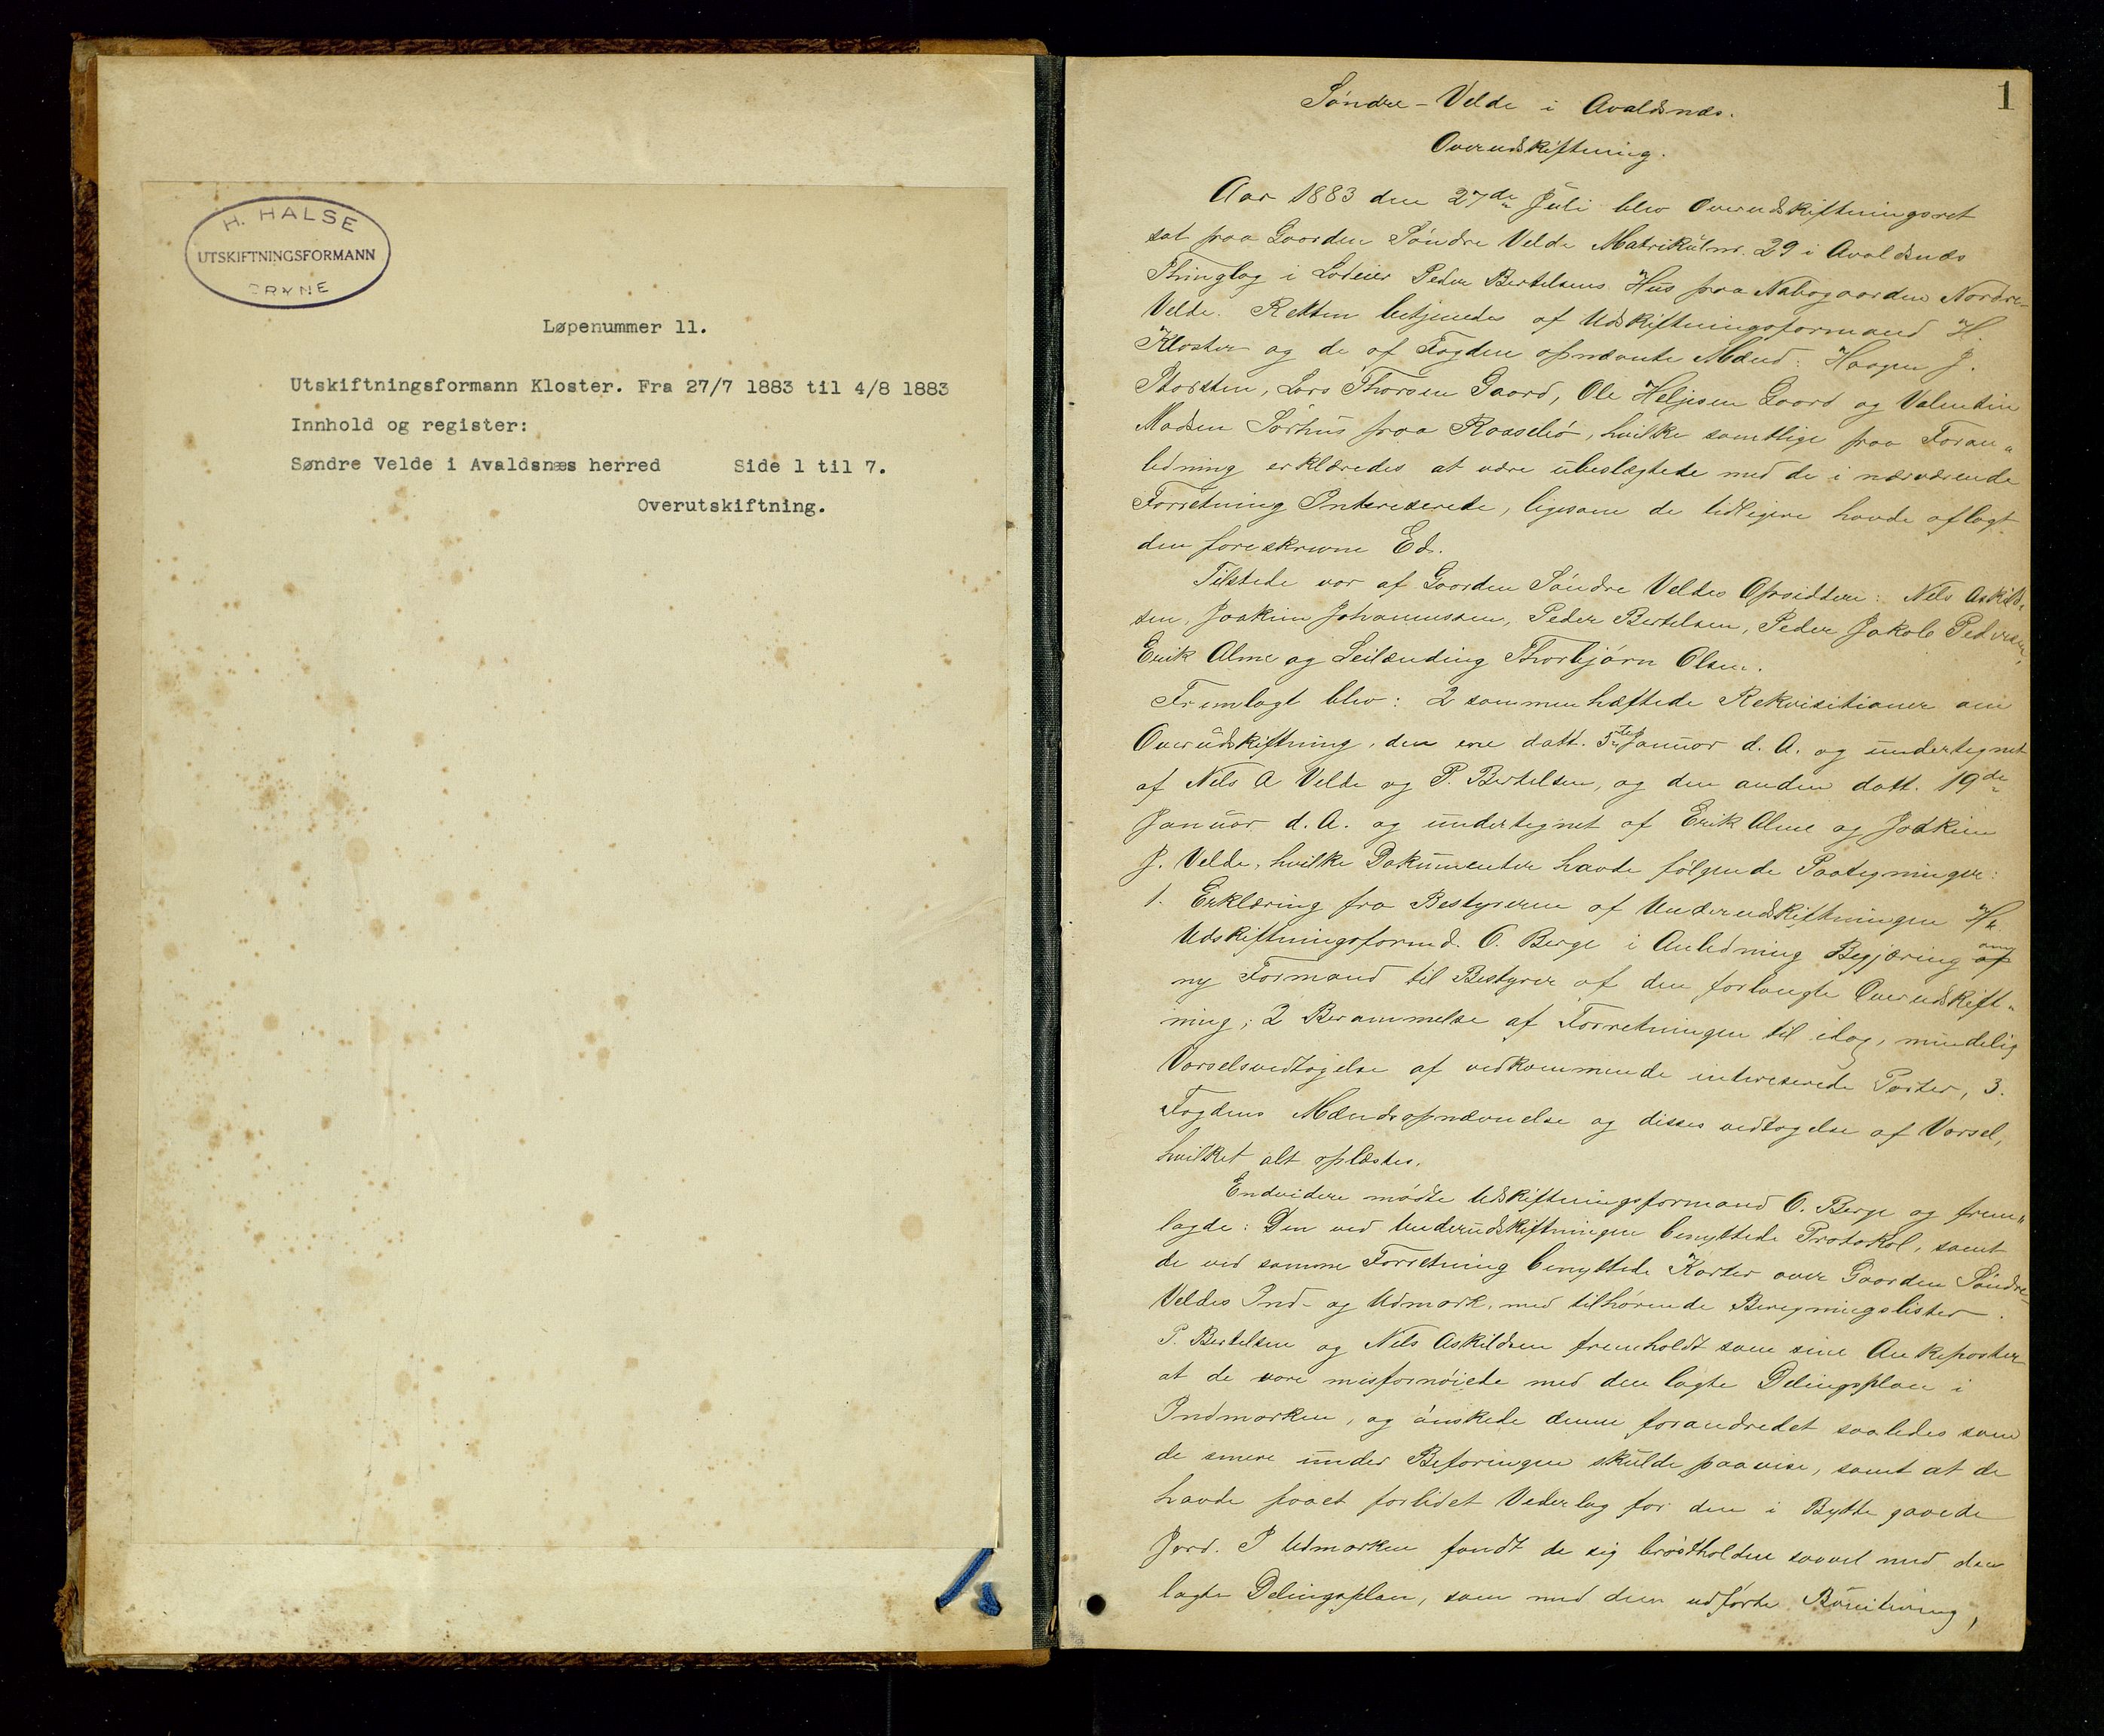 H. HALSE
UTSKIFTNINGSFORMANN
BRYNE
Løpenummer 11.
Utskiftningsformann Kloster. Fra 27/7 1883 til 4/8 1883
Innhold og register:
Søndre Velde i Avaldsnæs herred Side 1 til 7.
Overutskiftning.
1
Søndre - Velde i Avaldsnæs.
Overudskiftning.
Aar 1883 den 27de Juli blev Overudskiftningsret
sat paa Gaarden Søndre Velde Matrikulnr. 29 i Avaldsnæs
Thinglag i Lodeier Peder Bertelsens Hus paa Nabogaarden Nordre-
Velde. Retten betjenedes af Udskiftningsformand H.
Kloster og de af Fogden opnævnte Mænd: Haagen J.
Storsten, Lars Thorsen Gaard, Ole Heljesen Gaard og Valentin
Madsen Sørhus paa Rossebø, hvilke samtlige paa Foran„
ledning erklæredes at være ubeslægtede med de i nærværende
Forretning Intereserede, ligesom de tidligere havde aflagt
den foreskrevne Ed.
Tilstede var af Gaarden Søndre Veldes Opsiddere: Nels Askild„
sen, Joakim Johannessen, Peder Bertelsen, Peder Jakob Pedersen,
Erik Alme og Leilænding Thorbjørn Olsen.
Fremlagt blev: 2 sammenhæftede Rekvisitioner om
Overudskiftning, den ene datt. Januar d. A. og undertegnet
af Nels A Velde og P. Bertelsen, og den anden datt. 19de
Januar d. A. og undertegnet af Erik Alme og Joakim
J. Velde, hvilke Dokumenter havde følgende Paategninger:
1. Erklæring fra Bestyreren af Underudskiftningen Hr.
Udskiftningsformd. O. Berge i Anledning Begjæring af om
ny Formand til Bestyrer af den forlangte Overudskift„
ning; 2 Berammelse af Forretningen til idag, mundelig
Varselsvedtagelse af vedkommende intereserede Parter, 3.
Fogdens Mændsopnævnelse og disses vedtagelse af Varsel,
hvilket alt oplæstes.
Endvidere mødte Udskiftningsformand O. Berge og frem„
lagde: Den ved Underudskiftningen benyttede Protokol, samt
de ved samme Forretning benyttede Karter over Gaarden Søndre-
Veldes Ind- og Udmark, med tilhørende Beregningslister.
P. Bertelsen og Nels Askildsen fremholdt som sine Ankeposter
at de vare misfornøiede med den lagte Delingsplan i
Indmarken, og ønskede denne forandredet saaledes som
de senere under Befaringen skulde paavise, samt at de
havde faaet forlidet Vederlag for den i Bytte gavede
Jord. I Udmarken fandt de sig brøstholden saavel med den
lagte Delingsplan, som med den udførte Bonitering,